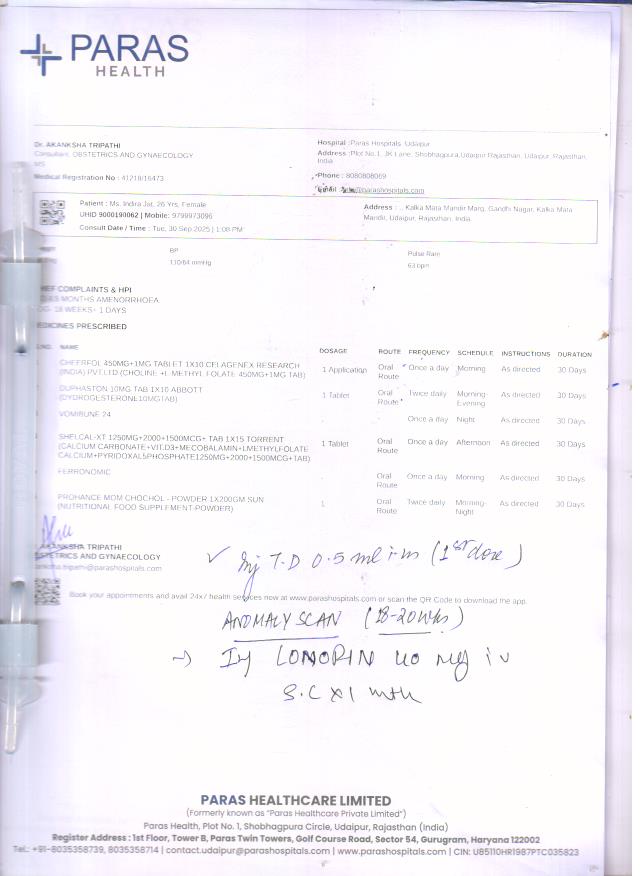 PARAS
HEALTH
Dr. AKANKSHA TRIPATHI
Consultant, OBSTETRICS AND GYNAECOLOGY
MS
Medical Registration No : 41218/16473
Hospital :Paras Hospitals, Udaipur
Address :Plot No.1, JK Lane, Shobhagpura,Udaipur Rajasthan, Udaipur, Rajasthan,
India
Phone : 8080808069
@parashospitals.com
Patient : Ms. Indira Jat, 26 Yrs, Female
UHID 9000190062 | Mobile: 9799973096
Consult Date / Time : Tue, 30 Sep 2025 | 1:08 PM
Address : .., Kalka Mata Mandir Marg, Gandhi Nagar, Kalka Mata
Mandir, Udaipur, Rajasthan, India,
BP
110/64 mmHg
Pulse Rate
63 bpm
IEF COMPLAINTS & HPI
MONTHS AMENORRHOEA
18 WEEKS+ 1 DAYS
EDICINES PRESCRIBED
NO. NAME DOSAGE ROUTE FREQUENCY SCHEDULE INSTRUCTIONS DURATION
CHEERFOL 450MG+1MG TABLET 1X10 CELAGENEX RESEARCH 1 Application Oral Once a day Morning As directed 30 Days
(INDIA) PVT.LTD (CHOLINE +L METHYL FOLATE 450MG+1MG TAB) Route
DUPHASTON 10MG TAB 1X10 ABBOTT 1 Tablet Oral Twice daily Morning- As directed 30 Days
(DYDROGESTERONE10MGTAB) Route Evening
VOMIBUNE 24 Once a day Night As directed 30 Days
SHELCAL-XT 1250MG+2000+1500MCG+ TAB 1X15 TORRENT 1 Tablet Oral Once a day Afternoon As directed 30 Days
(CALCIUM CARBONATE+VIT.D3+MECOBALAMIN+LMETHYLFOLATE Route
CALCIUM+PYRIDOXAL5PHOSPHATE1250MG+2000+1500MCG+TAB)
FERRONOMIC Oral Once a day Morning As directed 30 Days
Route
PROHANCE MOM CHOCHOL - POWDER 1X200GM SUN 1 Oral Twice daily Morning- As directed 30 Days
(NUTRITIONAL FOOD SUPPLEMENT-POWDER) Route Night
AKANKSHA TRIPATHI
OBSTETRICS AND GYNAECOLOGY
anksha.tripathi@parashospitals.com
✓ Inj T.D 0.5 ml i-m (1st dose)
Book your appointments and avail 24x7 health services now at www.parashospitals.com or scan the QR Code to download the app.
ANOMALY SCAN (18-20 wks)
→ Inj LONOPIN 40 mg
S.C X 1 mth
PARAS HEALTHCARE LIMITED
(Formerly known as "Paras Healthcare Private Limited")
Paras Health, Plot No. 1, Shobhagpura Circle, Udaipur, Rajasthan (India)
Register Address : 1st Floor, Tower B, Paras Twin Towers, Golf Course Road, Sector 54, Gurugram, Haryana 122002
Tel.: +91-8035358739, 8035358714 | contact.udaipur@parashospitals.com | www.parashospitals.com | CIN: U85110HR1987PTC035823